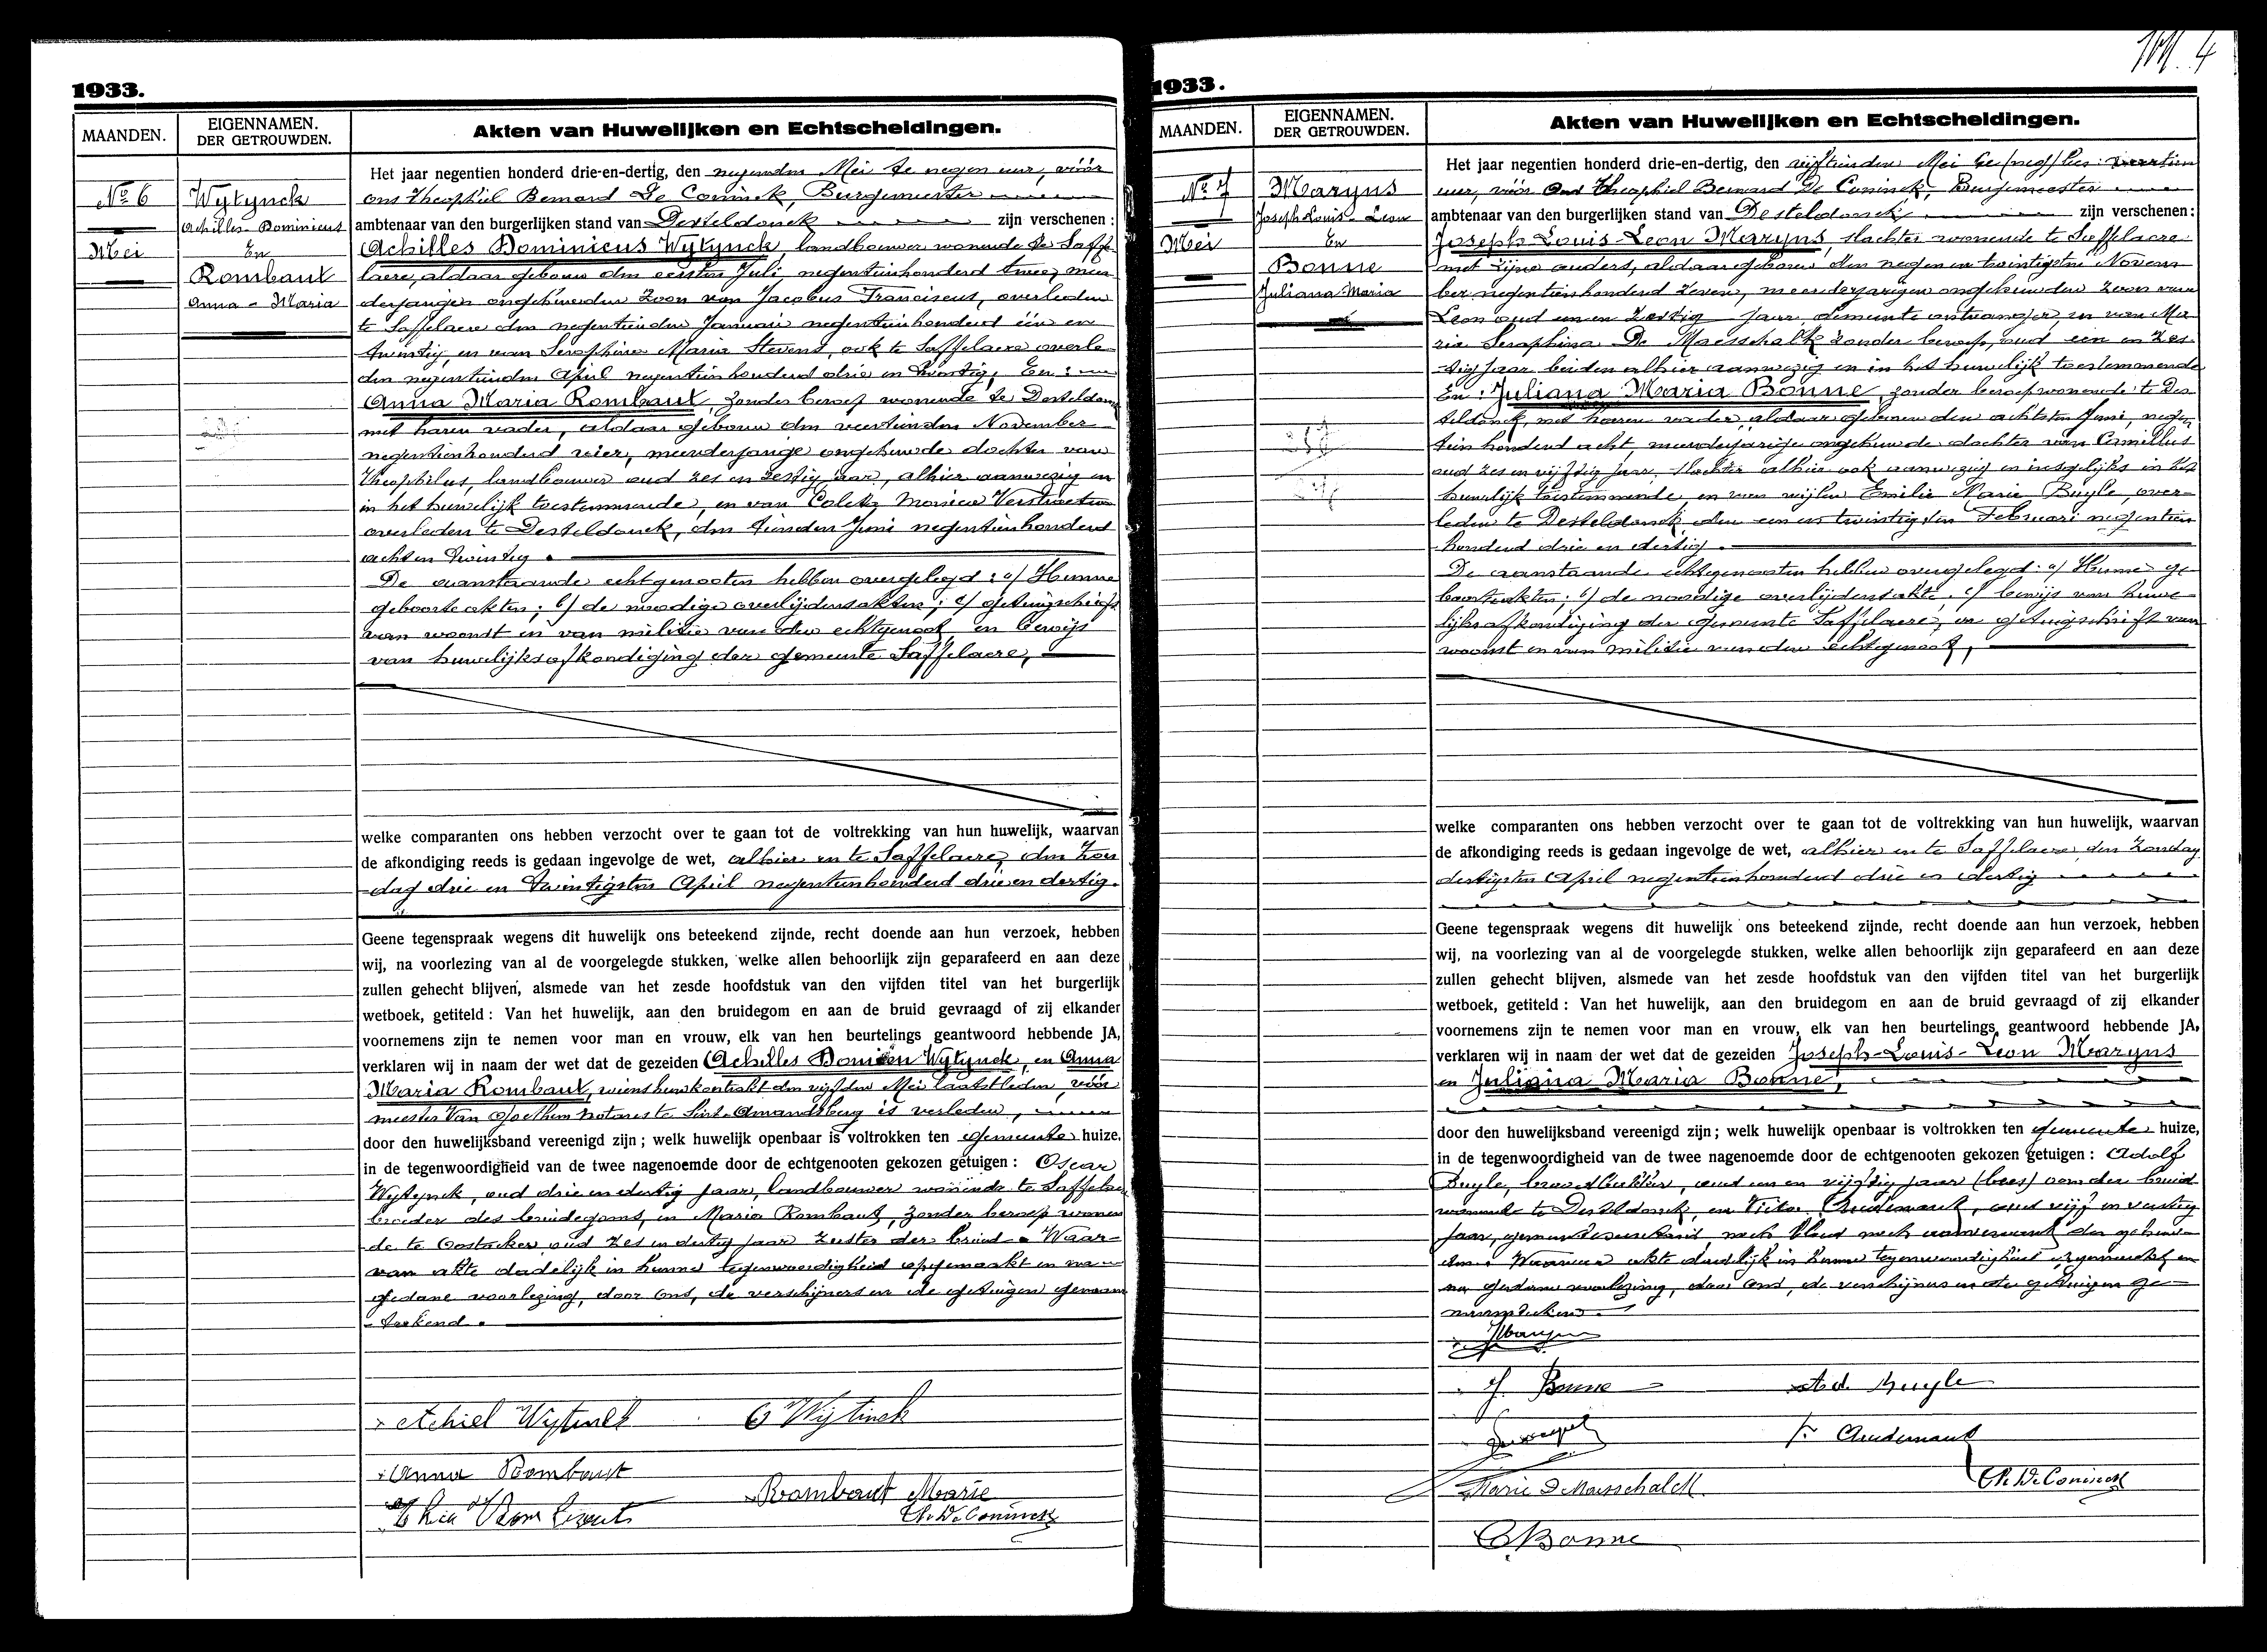 1933.
MAANDEN.
EIGENNAMEN.
DER GETROUWDEN.
Akten van Huwelijken en Echtscheidingen.
No 6
Mei
Wytynck
Achilles-Dominicus
En
Rombaut
Anna-Maria
Het jaar negentien honderd drie-en-dertig, den negenden Mei te negen uur, vóór
ons Theophiel Bernard De Coninck, Burgemeester
ambtenaar van den burgerlijken stand van Desteldonck zijn verschenen:
Achilles Dominicus Wytynck, landbouwer wonende te Saffe-
laere, aldaar geboren den eersten Juli negentienhonderd twee, meer
derjarigen ongehuwden zoon van Jacobus Franciscus, overleden
te Saffelaere den negentienden Januari negentienhonderd één en
twintig, en van Seraphina Maria Stevens, ook te Saffelaere overle
den negentienden April negentienhonderd drie en twintig, En:
Anna Maria Rombaut, zonder beroep wonende te Desteldonck
met haren vader, aldaar geboren den veertienden November
negentienhonderd vier, meerderjarige ongehuwde dochter van
Theophilus, landbouwer oud zes en zestig jaar, alhier aanwezig en
in het huwelijk toestemmende, en van Coleta Monica Verstraeten
overleden te Desteldonck, den tienden Juni negentienhonderd
acht en twintig.
De aanstaande echtgenooten hebben overgelegd: a/ Hunne
geboorteakten; b/ de noodige overlijdensakten; c/ getuigschrift
van woonst en van militie van den echtgenoot en bewijs
van huwelijksafkondiging der gemeente Saffelaere,
welke comparanten ons hebben verzocht over te gaan tot de voltrekking van hun huwelijk, waarvan
de afkondiging reeds is gedaan ingevolge de wet, alhier en te Saffelaere, den Zon
-dag drie en twintigsten April negentienhonderd drie en dertig.
Geene tegenspraak wegens dit huwelijk ons beteekend zijnde, recht doende aan hun verzoek, hebben
wij, na voorlezing van al de voorgelegde stukken, welke allen behoorlijk zijn geparafeerd en aan deze
zullen gehecht blijven, alsmede van het zesde hoofdstuk van den vijfden titel van het burgerlijk
wetboek, getiteld: Van het huwelijk, aan den bruidegom en aan de bruid gevraagd of zij elkander
voornemens zijn te nemen voor man en vrouw, elk van hen beurtelings geantwoord hebbende JA,
verklaren wij in naam der wet dat de gezeiden Achilles Wytynck, en Anna
Maria Rombaut, wiens huwkontrakt den vijfden Mei laatstleden, vóór
meester Van notaris te Sint-Amandsberg is verleden,
door den huwelijksband vereenigd zijn; welk huwelijk openbaar is voltrokken ten gemeente huize,
in de tegenwoordigheid van de twee nagenoemde door de echtgenooten gekozen getuigen: Oscar
Wytynck, oud drie en dertig jaar, landbouwer wonende te Saffelaere
broeder des bruidegoms, en Maria Rombaut, zonder beroep wonen
de te Oostacker oud zes en dertig jaar zuster der bruid. Waar-
van akte dadelijk in hunne tegenwoordigheid opgemaakt en na
gedane voorlezing, door ons, de verschijners en de getuigen genaam
-teekend.
Achiel Wijtinck
O Wijtinck
Anna Rombaut
Rombaut Marie
Th. De Coninck
1933.
MAANDEN.
EIGENNAMEN.
DER GETROUWDEN.
Akten van Huwelijken en Echtscheidingen.
No 7
Mei
Maryns
Joseph-Louis-Leon
En
Bonne
Juliana-Maria
Het jaar negentien honderd drie-en-dertig, den vijftienden Mei te
uur, vóór Ons Theophiel Bernard De Coninck, Burgemeester
ambtenaar van den burgerlijken stand van Desteldonck zijn verschenen:
Joseph-Louis-Leon Maryns, slachter wonende te Saffelaere
met zijne ouders, aldaar geboren den negen en twintigsten Novem
ber negentienhonderd zeven, meerderjarigen ongehuwden zoon van
Leon oud een en zestig jaar, gemeente ontvanger, en van Ma
ria Seraphina De Maesschalk zonder beroep, oud een en zes
-tig jaar beiden alhier aanwezig en in het huwelijk toestemmende
En: Juliana Maria Bonne, zonder beroep wonende te Des
teldonck, met haren vader, aldaar geboren den achtsten Juni, negen
tien honderd acht, meerderjarige ongehuwde dochter van Camillus
oud zes en vijftig jaar, slachter alhier ook aanwezig en insgelijks in het
huwelijk toestemmende, en van wijlen Emilie Marie Buyle, over-
leden te Desteldonck, den een en twintigsten Februari negentien
honderd drie en dertig.
De aanstaande echtgenooten hebben overgelegd: a/ Hunne ge
boorteakten; b/ de noodige overlijdensakte, c/ bewijs van huwe-
lijksafkondiging der gemeente Saffelaere, en getuigschrift van
woonst en van militie van den echtgenoot,
welke comparanten ons hebben verzocht over te gaan tot de voltrekking van hun huwelijk, waarvan
de afkondiging reeds is gedaan ingevolge de wet, alhier en te Saffelaere den Zondag
dertigsten April negentienhonderd drie en dertig
Geene tegenspraak wegens dit huwelijk ons beteekend zijnde, recht doende aan hun verzoek, hebben
wij, na voorlezing van al de voorgelegde stukken, welke allen behoorlijk zijn geparafeerd en aan deze
zullen gehecht blijven, alsmede van het zesde hoofdstuk van den vijfden titel van het burgerlijk
wetboek, getiteld: Van het huwelijk, aan den bruidegom en aan de bruid gevraagd of zij elkander
voornemens zijn te nemen voor man en vrouw, elk van hen beurtelings geantwoord hebbende JA,
verklaren wij in naam der wet dat de gezeiden Joseph-Louis-Leon Maryns
en Juliana Maria Bonne,
door den huwelijksband vereenigd zijn; welk huwelijk openbaar is voltrokken ten gemeente huize,
in de tegenwoordigheid van de twee nagenoemde door de echtgenooten gekozen getuigen: Adolf
Buyle, oud een en vijftig jaar der bruid
wonende te Desteldonck, en Victor Audenaert, oud vijf en veertig
jaar, noch bloed noch aanverwant der gehuw-
den. Waarvan akte dadelijk in hunne tegenwoordigheid opgemaakt en
na gedane voorlezing, door ons, de verschijners en de getuigen ge-
naamteekend.
J. Bonne
Ad. Buyle
Audenaert
Marie D Maesschalck
Th. De Coninck
C Bonne